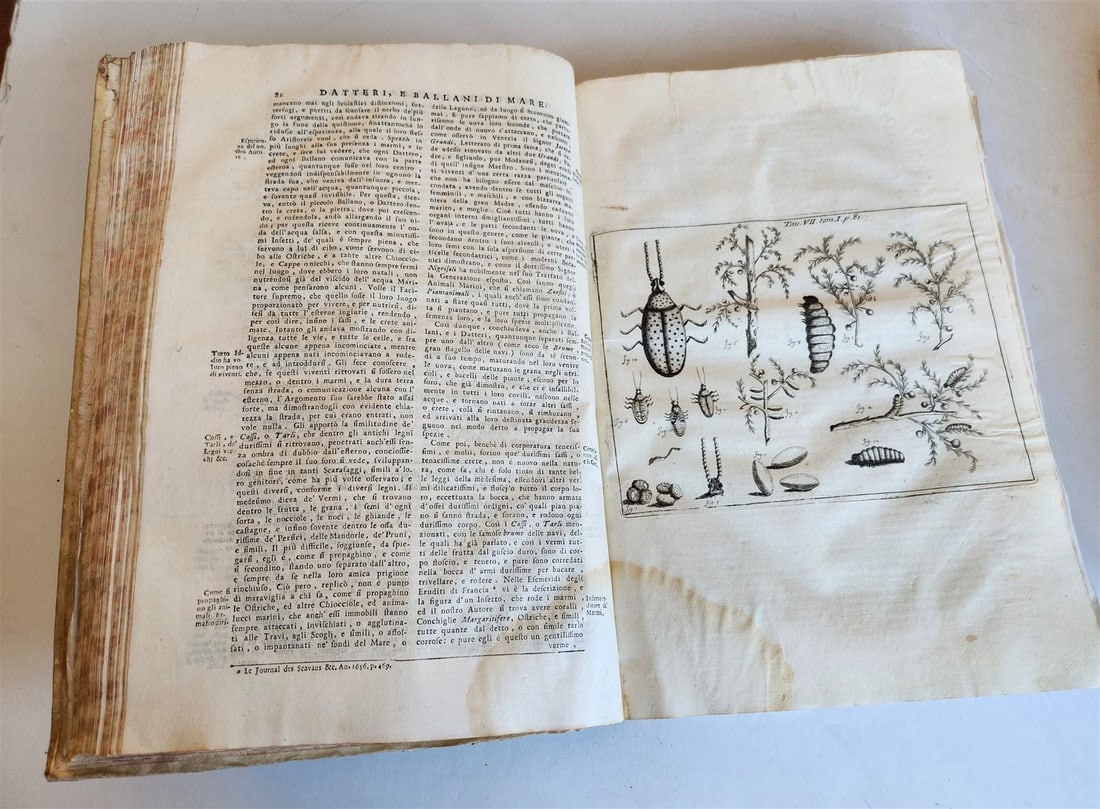 82
DATTERI, E BALLANI DI MARE.
mancano mai agli Scolastici distinzioni, sut-
terfugj, e partiti da scansare il nerbo de' più
forti argomenti, così andava tirando in lun-
go la fune della quistione, finattantochè lo
ridusse all'esperienza, alla quale il loro stes-
so Aristotele vuol, che si ceda. Spezzò in
più luoghi alla sua presenza i marmi, e le
crete, e fece lui vedere, che ogni Dattero,
ed ogni Ballano comunicava con la parte
esterna, quantunque fosse nel loro centro,
veggendosi indispensabilmente in ognuno la
strada sua, che veniva dall'insuora, e met-
teva capo nell'acqua, quantunque piccola,
e sovente quasi invisibile. Per questa, dice-
va, entrò il piccolo Ballano, o Dattero den-
tro la creta, o la pietra, dove poi crescen-
do, e rodendola, andò allargando il suo ni-
do; per questa riceve continuamente l'on-
da dell'acqua salsa, e con questa minutissi-
mi Insetti, de' quali è sempre piena, che
servono a lui di cibo, come servono di ci-
bo alle Ostriche, e a tante altre Chioccio-
le, e Cappe o nicchi, che stanno sempre fermi
nel luogo, dove ebbero i loro natali, non
nutrendosi già del viscido dell'acqua Mari-
na, come pensarono alcuni. Volle il Faci-
tore supremo, che quello fosse il loro luogo
proporzionato per vivere, e per nutrirsi, di-
fesi da tutte l'esterne ingiurie, rendendo,
per così dire, infino i sassi, e le crete ani-
mate. Intanto gli andava mostrando con di-
ligenza tutte le vie, e tutte le celle, e fra
queste alcune appena incominciate, mentre
alcuni appena nati incominciavano a rode-
re, e ad introdursi. Gli fece conoscere,
che, se questi viventi ritrovati si fossero nel
mezzo, o dentro i marmi, e la dura terra
senza strada, o comunicazione alcuna con l'
esterno, l'Argomento suo sarebbe stato assai
forte, ma dimostrandogli con evidente chia-
rezza la strada, per cui erano entrati, non
vole nulla. Gli apportò la similitudine de'
Cossi, o Tarli, che dentro gli antichi legni
durissimi si ritrovano, penetrati anch'essi sen-
za ombra di dubbio dall'esterno, conciossie-
cosachè sempre il suo foro si vede, sviluppan-
dosi in fine in tanti Scarafaggi, simili a' lo-
ro genitori, come ha più volte osservato; e
questi diversi, conforme i diversi legni. Il
medesimo dicea de' Vermi, che si trovano
dentro le frutta, le grana, i semi d'ogni
sorta, le nocciole, le noci, le ghiande, le
castagne, e infino sovente dentro le ossa du-
rissime de' Persici, delle Mandorle, de' Pruni,
e simili. Il più difficile, soggiunse, da spie-
garsi, egli è, come si propaghino, e come
si fecondino, stando uno separato dall'altro,
e sempre da se nella loro amica prigione
rinchiuso. Ciò però, replicò, non è punto
di maraviglia a chi sa, come si propaghino
le Ostriche, ed altre Chiocciole, ed anima-
lucci marini, che anch'essi immobili stanno
sempre attaccati, invischiati, o agglutina-
ti alle Travi, agli Scoglj, e simili, o affos-
sati, o impantanati ne' fondi del Mare, o
Turno Id-
dio ha vo-
luto pieno
di viventi.
Cossi, e
Tarli, de'
Legni vec-
chi &c.
Come si
propaghi-
no gli ani-
mali im-
mobili.
delle Lagune, nè da luogo si muovono giam-
mai. E pure sappiamo di certo, che parto-
riscono le uova loro seconde, che portate
dall'onde di nuovo s'attaccano, e
come osservò in Venezia il Signor
Grandi, Letterato di prima sfera, che
de adesso rinovato da altri due Grandi,
dre, e figliuolo, pur Modanesi, degni
di quell'insigne Maestro. Sono i mentova-
ti viventi d'una certa razza particolare,
che non ha bisogno essere dal maschio fe-
condata, avendo dentro se tutti gli organi
femminili, e maschili, e con bizzarra ma-
niera della gran Madre, essendo cadauno
marito, e moglie. Cioè tutti hanno i loro
organi interni simiglianitissimi, tutti hanno
l'ovaja, e le parti secondanti le uova, e
sono in questo genere, come le piante, che
fecondano dentro i suoi alveoli, o utricoli i
loro semi con la sola aspersione di certe par-
ti secondatrici, come i moderni Bota-
nici dimostrano, e come il dottissimo Signor
Nigrisoli ha nobilmente nel suo Trattato del-
la Generazione esposto. Così sanno quegli
Animali Marini, che si chiamano Zoofiti, o
Piantanimali, i quali anch'essi sono condan-
nati a state quasi tutti, dove la prima vol-
ta si piantano, e pure tutti propagano la
semenza loro, e la loro spezie moltiplicano.
Così dunque, conchiudeva, anche i Bal-
lani, e i Datteri, quantunque separati sem-
pre uno dall'altro (come anco le Brume,
gran flagello delle navi) sono da se fecon-
di a suo tempo, maturando nel loro ventre
le uova, come maturano le grana negli utri-
coli, e bacelli delle piante, escono per lo
foro, che già dimostrò, e che ci è infallibil-
mente in tutti i loro covili, nascono nelle
acque, e tornano nati a forar altri sassi,
o crete, colà si rintanano, si rimbucano,
ed arrivati alla loro destinata grandezza se-
guono nel modo detto a propagar la sua
spezie.
Come poi, benchè di corporatura teneris-
simi, e molli, forino que' durissimi sassi, o
tenacissime crete, non è nuovo nella natu-
ra, come sa, chi è solo tinto di tante bel-
le leggi della medesima, essendovi altri ver-
mi dilicatissimi, e flosci per tutto il corpo lo-
ro, eccettuata la bocca, che hanno armata
d'ossei durissimi ordigni, co' quali pian pia-
no si fanno strada, e forano, e rodono ogni
durissimo corpo. Così i Cossi, o Tarli men-
zionati, così le famose brume delle navi, del-
le quali ha già parlato, e così i vermi tut-
ti delle frutta dal guscio duro, sono di cor-
po floscio, e tenero, e pure sono corredati
nella bocca d'armi durissime per bucare,
trivellare, e rodere. Nelle Esemeridi degli
Eruditi di Francia a vi è la descrizione, e
la figura d'un Insetto, che rode i marmi,
ed il nostro Autore si trova avere coralli,
Conchiglie Margaritifere, Ostriche, e simili,
tutte quante dal detto, o con simile tarlo
corrose: e pure egli è questo un gentilissimo
verme,
a Le Journal des Scavans &c. An. 1656. p. 469.
Tav. VII. tom. I. p. 82.